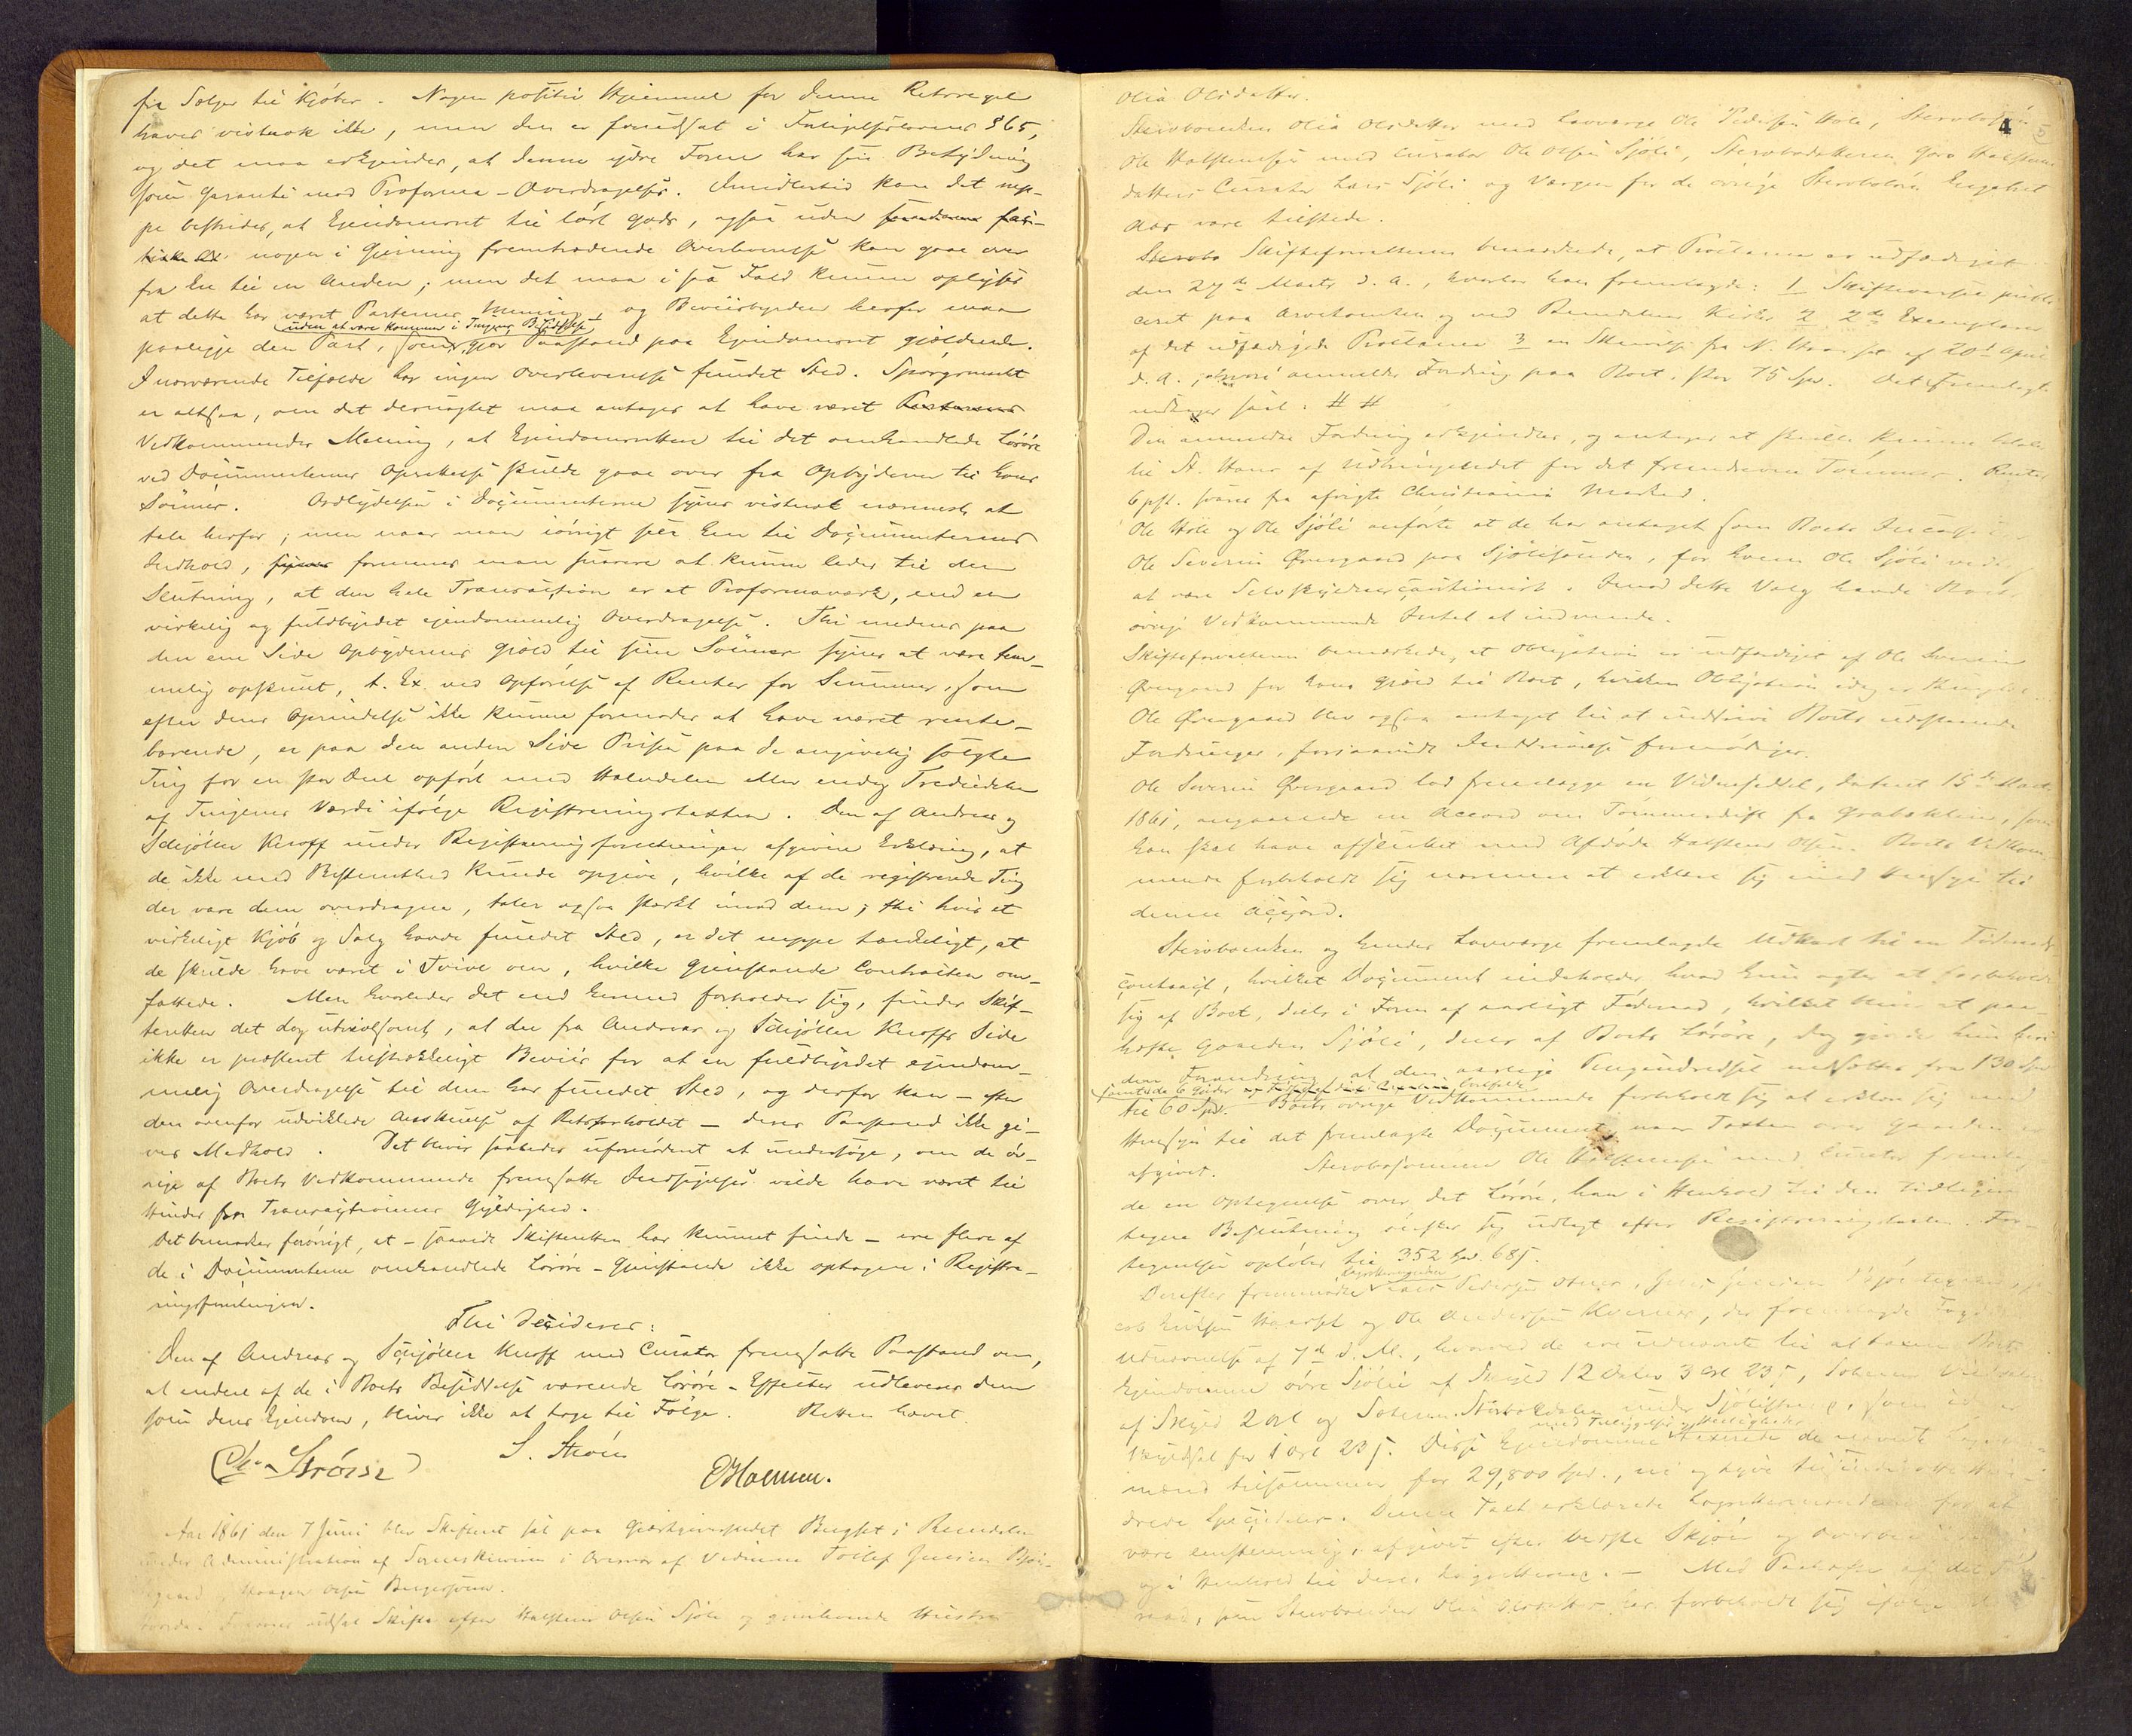 fra Sælger til Kjøber. Nogen positiv Hjemmel for denne Retsregel
haves vistnok ikke, men den er forudsat i Fallitlovens § 65,
og det maa erkjendes, at denne ydre Form har sin Betydning
som Garanti mod Proforma-Overdragelser. Imidlertid kan det nep-
pe bestrides, at Ejendomsret til løst Gods, ogsaa uden
nogen i Gjerning fremtrædende Overleverelse kan gaae over
fra Een til en Anden; men det maa i saa Fald kunne oplyses
at dette har været Parternes Mening og Beviisbyrden herfor maa
uden at være kommen i Tingens Besiddelse
paaligge den Part, som gjør Paastand paa Ejendomsret gjældende.
I nærværende Tilfælde har ingen Overleverelse fundet Sted. Spørgsmaalet
er altsaa, om det desuagtet maa antages at have været
Vedkommendes Mening, at Ejendomsretten til det omhandlede Løsøre
ved Documenternes Oprettelse skulde gaae over fra Opbyderen til hans
Sønner. Ordlydelsen i Documenterne synes vistnok nærmest at
tale herfor; men naar man iøvrigt seer hen til Documenternes
Indhold, synes formener man snarere at kunne ledes til den
Slutning, at den hele Transaction er et Proformaværk, end en
virkelig og fuldbyrdet ejendommelig Overdragelse. Thi medens paa
den ene Side Opbyderens Gjæld til sine Sønner synes at være tem-
melig opskruet, t. Ex. ved Opførelse af Renter for Summer, som
efter deres Oprindelse ikke kunne formodes at have været rente-
bærende, er paa den anden Side Prisen paa de angivelig solgte
Ting for en stor Deel opført med Halvdelen eller endog Trediedelen
af Tingenes Værdi ifølge Registreringstaxten. Den af Andreas og
Schjøller Knoff under Registreringsforretningen afgivne Erklæring, at
de ikke med Bestemthed kunde opgive, hvilke af de registrerede Ting
der vare dem overdragne, taler ogsaa stærkt imod dem; thi hvis et
virkeligt Kjøb og Salg havde fundet Sted, er det neppe tænkeligt, at
de skulde have været i Tvivl om, hvilke Gjenstande Contracten om-
fattede. Men hvorledes det end hermed forholder sig, finder Skif-
teretten det dog utvivlsomt, at der fra Andreas og Schjøller Knoffs Side
ikke er præsteret tilstrækkeligt Beviis for at en fuldbyrdet ejendom-
melig Overdragelse til dem har fundet Sted, og derfor kan - efter
den ovenfor udviklede Anskuelse af Retsforholdet - deres Paastand ikke gi-
ves Medhold. Det bliver saaledes ufornødent at undersøge, om de øv-
rige af Boets Vedkommende fremsatte Indsigelser vilde have været til
Hinder for Transactionens Gyldighed.
Det bemærkes forøvrigt, at - saavidt Skifteretten har kunnet finde - ere flere af
de i Documenterne omhandlede Løsøre-Gjenstande ikke optagne i Registre-
ringsforretningen.
Thi decideres:
Den af Andreas og Schjøller Knoff med Curator fremsatte Paastand om,
at endeel af de i Boets Besiddelse værende Løsøre-Effecter udleveres dem
som deres Ejendom, bliver ikke at tage til Følge. Retten hævet
Chr Strøm S. Strøm
OHolmen.
Aar 1861 den 7 Juni blev Skifteret sat paa Gjæstgiverstedet Bugset i Rendalen
under Administration af Sorenskriveren i Overvær af Vidnerne Tollef Jensen Bjør-
negaard Haagen Olsen Bergersøen.
Foretages udsat Skifte efter Halsteen Olsen Sjøli og gjenlevende Hustru
4
Olia Olsdatter.
Stervboenken Olia Olsdatter med Laugværge Ole Pedersen Hole, Stervbosønnen
Ole Halsteensen med Curator Ole Olsen Sjøli, Stervbodatteren Goro Halsteens-
datters Curator Lars Sjøli og Værgen for de øvrige Stervbobørn Engebret
Aas vare tilstede.
Skifteforvalteren bemærkede, at Proclama er udfærdiget
den 27de Marts d. A., hvorhos han fremlagde: 1 Skiftevarsel publi-
ceret paa Arvetomten og ved Rendalens Kirke 2 2de Exemplarer
af det udfærdigede Proclama 3 en Skrivelse fra N. af 20de April
d. A., hvori anmeldes Fordring paa Boet, stor 75 Spd. Det Fremlagte
indtages saal: # #
Den anmeldte Fordring erkjendtes, og antages at skulle kunne betales
til St. Hans af Udbringelsen for det fremdrevne Tømmer. Renter
6 pCt. svares fra afvigte Christiania Marked.
Ole Hole og Ole Sjøli anførte at de har antaget som Boets Incassator
Ole Severin Øvergaard paa Sjølisanden, for hvem Ole Sjøli vedtog
at være Selvskyldnercautionist. Imod dette Valg havde Boets
øvrige Vedkommende Intet at indvende.
Skifteforvalteren bemærkede, at Obligation er udfærdiget af Ole Severin
Øvergaard for hans Gjæld til Boet, hvilken Obligation idag er
Ole Øvergaard blev ogsaa antaget til at inddrive Boets udestaaende
Fordringer, forsaavidt Inddrivelse fornødiges.
Ole Severin Øvergaard lod fremlægge en Vidneseddel, dateret 15de Marts
1861, angaaende en Accord om Tømmerdrift fra Graboklien, som
han skal have afsluttet med Afdøde Halsteen Olsen. Boets Vedkom-
mende forbeholdt sig nærmere at erklære sig med Hensyn til
denne Accord.
Stervboenken og hendes Laugværge fremlagde Udkast til en Føderaads-
contract, hvilket Document indeholder hvad hun agter at forbeholde
sig af Boet, deels i Form af aarligt Føderaad, hvilket bliver at paa-
hefte Gaarden Sjøli, deels af Boets Løsøre, dog gjorde hun heri
den Forandring, at den aarlige Pengeindredsel nedsattes fra 130 Spd
samt de 6 Gjeder
til 60 Spd. Boets øvrige Vedkommende forbeholdt sig at erklære sig med
Hensyn til det fremlagte Document naar Taxten over Gaarden
afgivet. Stervbosønnen Ole Halsteensen med Curator fremlag-
de en Optegnelse over det Løsøre, han i Henhold til den tidligere
tagne Beslutning ønsker sig udlagt efter Registreringstaxten. For-
tegnelsen opløber til 352 Spd. 68 s.
Laugrettesmændene
Derefter fremmødte Lars Pedersen, Jens Jensen
og Ole Andersen, der fremlagde Fogdens
Udnævnelse af 7de d. M., hvorved de ere udnævnte til at taxere Boets
Ejendomme øvre Sjøli af Skyld 12 Daler 3 Ort 23 s,
af Skyld 2 Ort og Sæteren under Sjøli,
med Tilliggelser og Herligheder
skyldsat for 1 Ort 23 s. Disse Ejendomme taxerede de nævnte Laugrettes-
mænd tilsammen for 29,800 Spd., ni og tyve tusinde otte Hun-
drede Speciedaler. Denne Taxt erklærede Laugrettesmændene for at
være eenstemmig, afgivet efter bedste Skjøn og Overbeviisning
og i Henhold til deres Laugretteseed. - Med Paaheftelse af det Føde-
raad, som Stervboenken Olia Olsdatter har forbeholdt sig ifølge